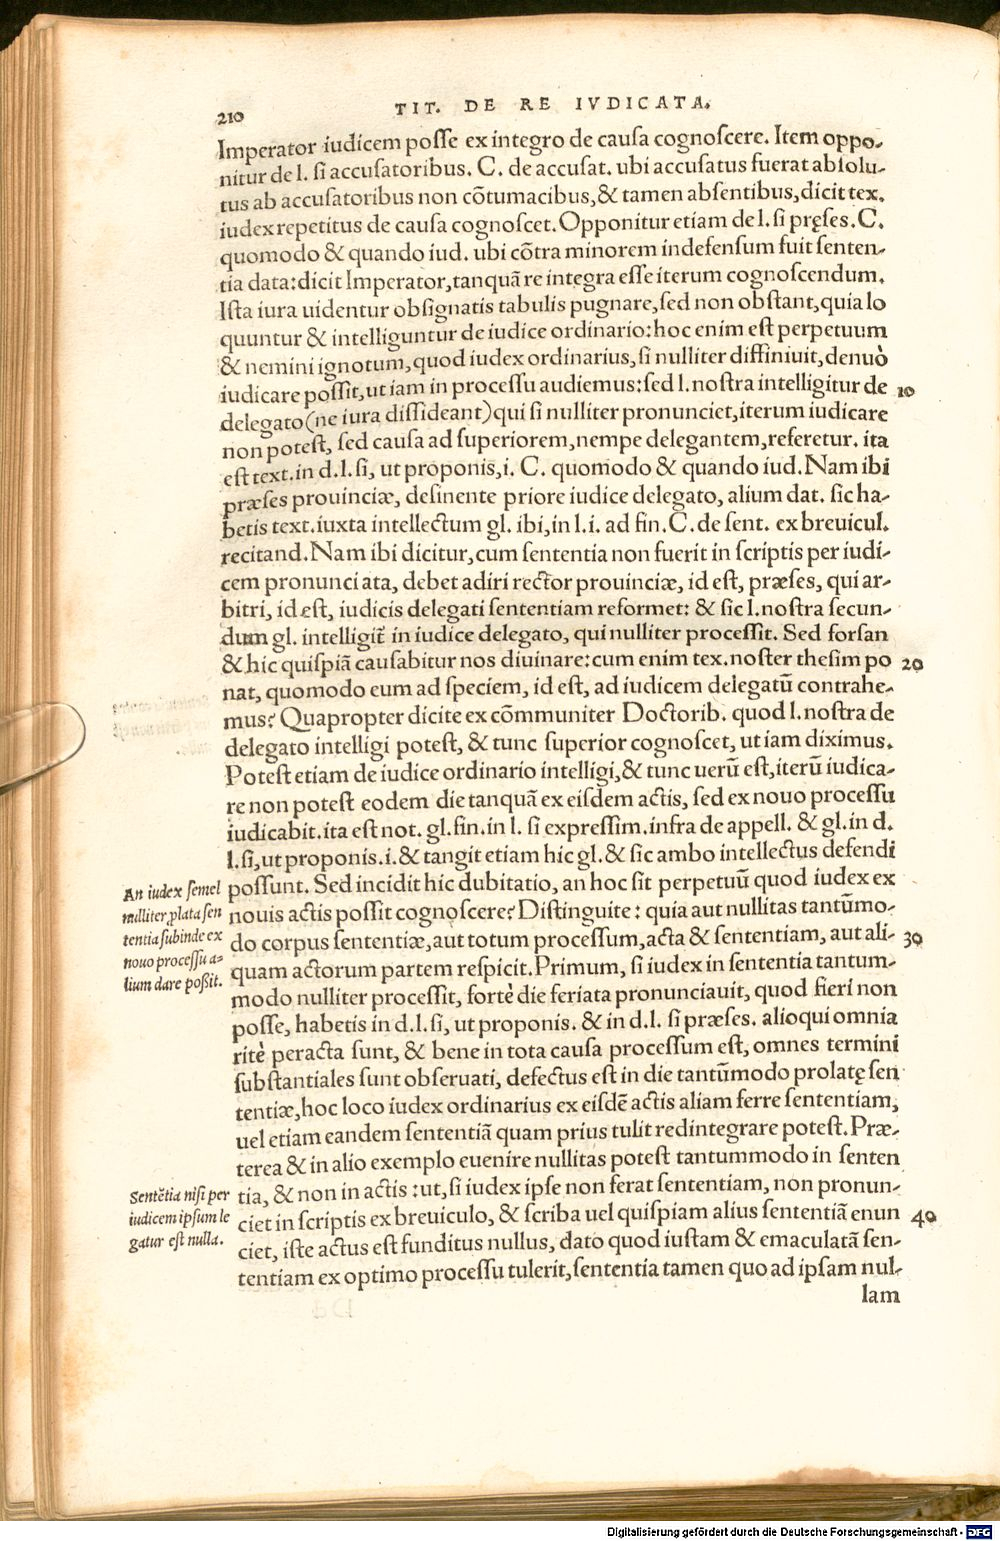 210
TIT. DE RE IVDICATA.
Imperator iudicem posſe ex integro de cauſa cognoſcere. Item oppo-
nitur de l. ſi accuſatoribus. C. de accuſat. ubi accuſatus fuerat abſolu-
tus ab accuſatoribus non cõtumacibus, & tamen abſentibus, dicit tex.
iudex repetitus de cauſa cognoſcet. Opponitur etiam de l. ſi pręſes. C.
quomodo & quando iud. ubi cõtra minorem indefenſum fuit ſenten-
tia data: dicit Imperator, tanquã re integra eſſe iterum cognoſcendum.
Iſta iura uidentur obſignatis tabulis pugnare, ſed non obſtant, quia lo
quuntur & intelliguntur de iudice ordinario: hoc enim eſt perpetuum
& nemini ignotum, quod iudex ordinarius, ſi nulliter diffiniuit, denuò
iudicare poſſit, ut iam in proceſſu audiemus: ſed l. noſtra intelligitur de
10
delegato (ne iura diſſideant) qui ſi nulliter pronunciet, iterum iudicare
non poteſt, ſed cauſa ad ſuperiorem, nempe delegantem, referetur. ita
eſt text. in d. l. ſi, ut proponis, i. C. quomodo & quando iud. Nam ibi
præſes prouinciæ, deſinente priore iudice delegato, alium dat. ſic ha-
betis text. iuxta intellectum gl. ibi, in l. i. ad fin. C. de ſent. ex breuicul.
recitand. Nam ibi dicitur, cum ſententia non fuerit in ſcriptis per iudi-
cem pronunciata, debet adiri rector prouinciæ, id eſt, præſes, qui ar-
bitri, id eſt, iudicis delegati ſententiam reformet: & ſic l. noſtra ſecun-
dum gl. intelligit̃ in iudice delegato, qui nulliter proceſſit. Sed forſan
& hic quiſpiã cauſabitur nos diuinare: cum enim tex. noſter theſim po
20
nat, quomodo eum ad ſpeciem, id eſt, ad iudicem delegatũ contrahe-
mus? Quapropter dicite ex cõmuniter Doctorib. quod l. noſtra de
delegato intelligi poteſt, & tunc ſuperior cognoſcet, ut iam diximus.
Poteſt etiam de iudice ordinario intelligi, & tunc uerũ eſt, iterũ iudica-
re non poteſt eodem die tanquã ex eiſdem actis, ſed ex nouo proceſſu
iudicabit. ita eſt not. gl. fin. in l. ſi expreſſim. infra de appell. & gl. in d.
l. ſi, ut proponis. i. & tangit etiam hic gl. & ſic ambo intellectus defendi
poſſunt. Sed incidit hic dubitatio, an hoc ſit perpetuũ quod iudex ex
nouis actis poſſit cognoſcere? Diſtinguite: quia aut nullitas tantũmo-
do corpus ſententiæ, aut totum proceſſum, acta & ſententiam, aut ali-
30
quam actorum partem reſpicit. Primum, ſi iudex in ſententia tantum-
modo nulliter proceſſit, fortè die feriata pronunciauit, quod fieri non
poſſe, habetis in d. l. ſi, ut proponis. & in d. l. ſi præſes. alioqui omnia
ritè peracta ſunt, & bene in tota cauſa proceſſum eſt, omnes termini
ſubſtantiales ſunt obſeruati, defectus eſt in die tantũmodo prolatę ſen
tentiæ, hoc loco iudex ordinarius ex eiſdẽ actis aliam ferre ſententiam,
uel etiam eandem ſententiã quam prius tulit redintegrare poteſt. Præ-
terea & in alio exemplo euenire nullitas poteſt tantummodo in ſenten
tia, & non in actis: ut, ſi iudex ipſe non ferat ſententiam, non pronun-
ciet in ſcriptis ex breuiculo, & ſcriba uel quiſpiam alius ſententiã enun
40
ciet, iſte actus eſt funditus nullus, dato quod iuſtam & emaculatã ſen-
tentiam ex optimo proceſſu tulerit, ſententia tamen quo ad ipſam nul-
lam
An iudex ſemel
nulliter ꝓlata ſen
tentia ſubinde ex
nouo proceſſu a-
lium dare poßit.
Sentẽtia niſi per
iudicem ipſum le
gatur eſt nulla.
Digitalisierung gefördert durch die Deutsche Forschungsgemeinschaft - DFG